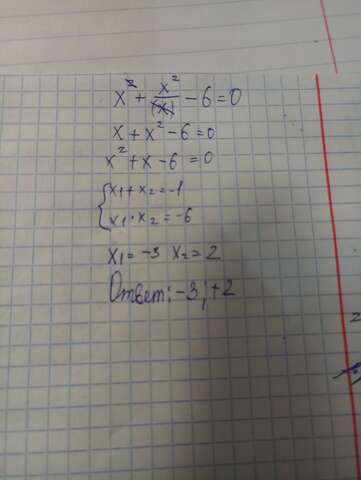 x² + x²/(x) - 6 = 0
x + x² - 6 = 0
x² + x - 6 = 0
{ x1 + x2 = -1
x1 · x2 = -6
x1 = -3 x2 = 2
Ответ: -3; +2
2